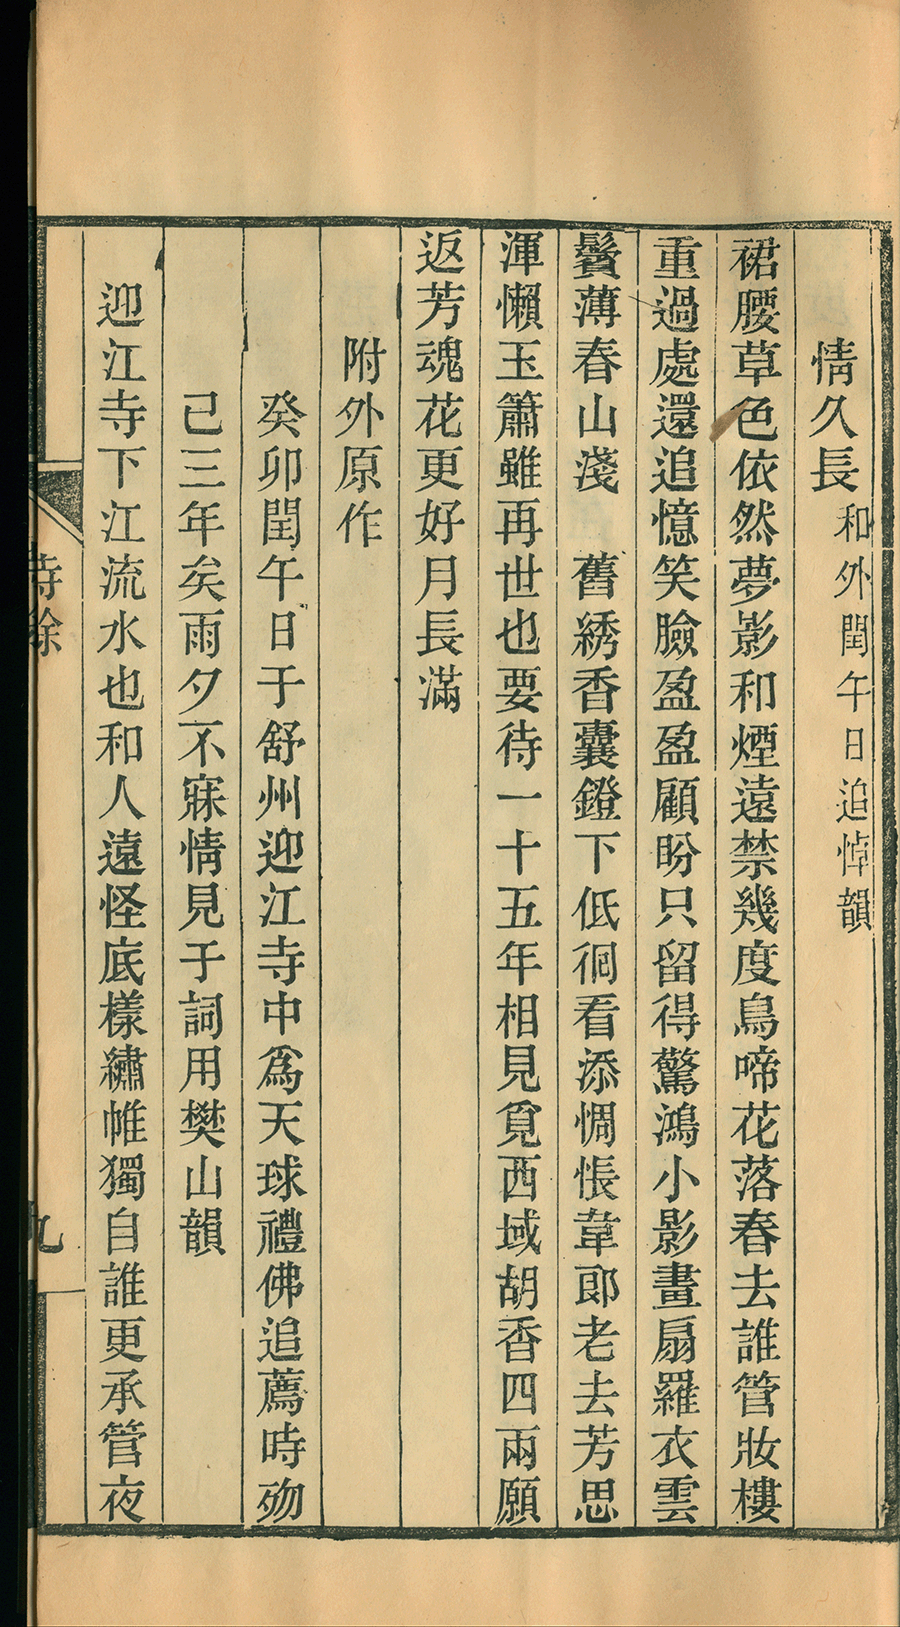 情久長 和外閏午日追悼韻
裙腰草色依然夢影和煙遠禁幾度鳥啼花落春去誰管妝樓
重過處還追憶笑臉盈盈顧盼只留得驚鴻小影畫扇羅衣雲
鬢薄春山淺 舊綉香囊鐙下低徊看添惆悵韋郎老去芳思
渾懶玉簫雖再世也要待一十五年相見覓西域胡香四兩願
返芳魂花更好月長滿
附外原作
癸卯閏午日于舒州迎江寺中爲天球禮佛追薦時歾
己三年矣雨夕不寐情見于詞用樊山韻
迎江寺下江流水也和人遠怪底樣繡帷獨自誰更承管夜
詩餘
九